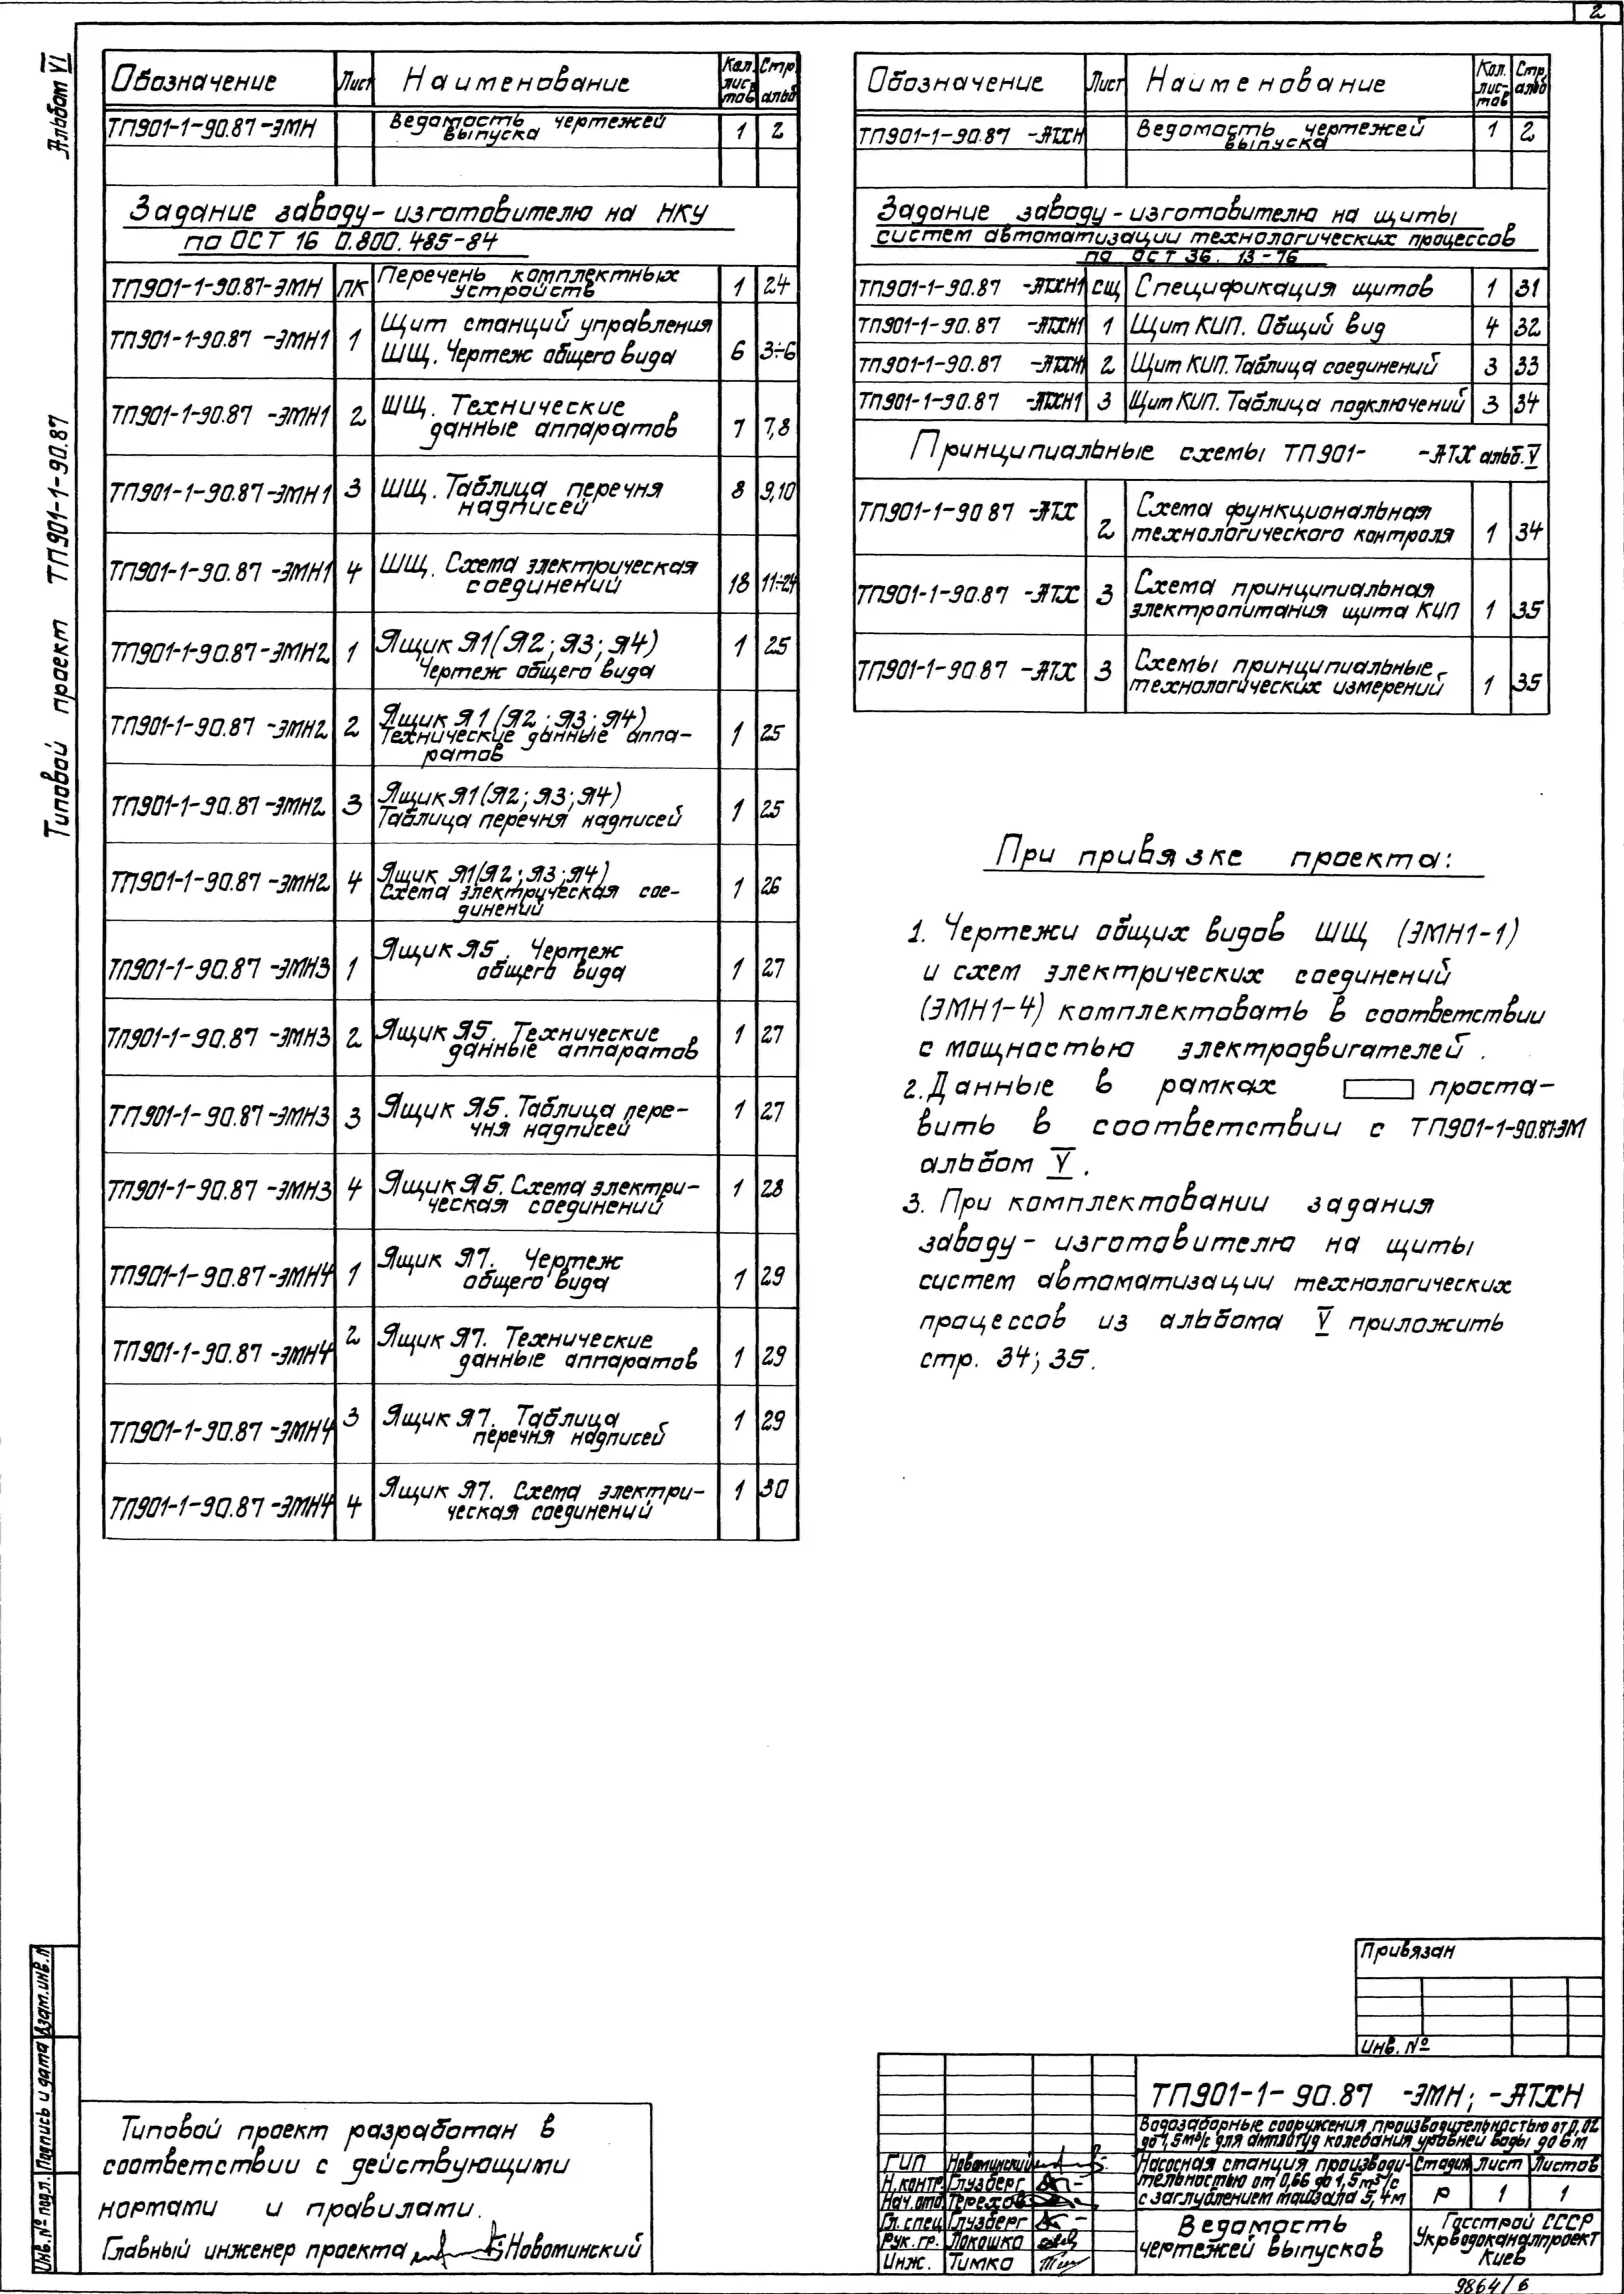 2
Альбом VI
Типовой проект ТП901-1-90.87
Обозначение Лист Наименование Кол. листов Стр. альб
ТП901-1-90.87-ЭМН Ведомость чертежей выпуска 1 2
Задание заводу-изготовителю на НКУ
по ОСТ 16 0.800.485-84
ТП901-1-90.87-ЭМН ПК Перечень комплектных устройств 1 24
ТП901-1-90.87-ЭМН1 1 Щит станций управления ШЩ. Чертеж общего вида 6 3÷6
ТП901-1-90.87-ЭМН1 2 ШЩ. Технические данные аппаратов 7 7,8
ТП901-1-90.87-ЭМН1 3 ШЩ. Таблица перечня надписей 8 9,10
ТП901-1-90.87-ЭМН1 4 ШЩ. Схема электрическая соединений 18 11÷24
ТП901-1-90.87-ЭМН2 1 Ящик Я1(Я2; Я3; Я4) Чертеж общего вида 1 25
ТП901-1-90.87-ЭМН2 2 Ящик Я1(Я2; Я3; Я4) Технические данные аппаратов 1 25
ТП901-1-90.87-ЭМН2 3 Ящик Я1(Я2; Я3; Я4) Таблица перечня надписей 1 25
ТП901-1-90.87-ЭМН2 4 Ящик Я1(Я2; Я3; Я4) Схема электрическая соединений 1 26
ТП901-1-90.87-ЭМН3 1 Ящик Я5. Чертеж общего вида 1 27
ТП901-1-90.87-ЭМН3 2 Ящик Я5. Технические данные аппаратов 1 27
ТП901-1-90.87-ЭМН3 3 Ящик Я5. Таблица перечня надписей 1 27
ТП901-1-90.87-ЭМН3 4 Ящик Я5. Схема электрическая соединений 1 28
ТП901-1-90.87-ЭМН4 1 Ящик Я7. Чертеж общего вида 1 29
ТП901-1-90.87-ЭМН4 2 Ящик Я7. Технические данные аппаратов 1 29
ТП901-1-90.87-ЭМН4 3 Ящик Я7. Таблица перечня надписей 1 29
ТП901-1-90.87-ЭМН4 4 Ящик Я7. Схема электрическая соединений 1 30
Обозначение Лист Наименование Кол. лис-тов Стр. альб
ТП901-1-90.87 -АТХН Ведомость чертежей выпуска 1 2
Задание заводу-изготовителю на щиты
систем автоматизации технологических процессов
по ОСТ 36.13-76
ТП901-1-90.87 -АТХН1 СЩ Спецификация щитов 1 31
ТП901-1-90.87 -АТХН1 1 Щит КИП. Общий вид 4 32
ТП901-1-90.87 -АТХН1 2 Щит КИП. Таблица соединений 3 33
ТП901-1-90.87 -АТХН1 3 Щит КИП. Таблица подключений 3 34
Принципиальные схемы ТП901- -АТХ альб. V
ТП901-1-90 87 -АТХ 2 Схема функциональная технологического контроля 1 34
ТП901-1-90.87 -АТХ 3 Схема принципиальная электропитания щита КИП 1 35
ТП901-1-90 87 -АТХ 3 Схемы принципиальные технологических измерений 1 35
При привязке проекта:
1. Чертежи общих видов ШЩ (ЭМН1-1)
и схем электрических соединений
(ЭМН1-4) комплектовать в соответствии
с мощностью электродвигателей.
2. Данные в рамках проста-
вить в соответствии с ТП901-1-90.87-ЭМ
альбом V.
3. При комплектовании задания
заводу-изготовителю на щиты
систем автоматизации технологических
процессов из альбома V приложить
стр. 34; 35.
Привязан
Инв. №
Инв.№ подл. Подпись и дата Взам.инв.№
Типовой проект разработан в
соответствии с действующими
нормами и правилами.
Главный инженер проекта Новоминский
ТП901-1-90.87 -ЭМН; -АТХН
Водозаборные сооружения производительностью от 0,02
до 1,5м³/с для амплитуд колебания уровней воды до 6м
ГИП Новоминский
Н.контр. Глузберг
Нач.отд Терехов
Гл.спец Глузберг
Рук.гр. Локошко
Инж. Тимко
Насосная станция производи-
тельностью от 0,66 до 1,5м³/с
с заглублением машзала 5,4м
Стадия Лист Листов
Р 1 1
Ведомость
чертежей выпусков
Госстрой СССР
Укрводоканалпроект
Киев
9864/6